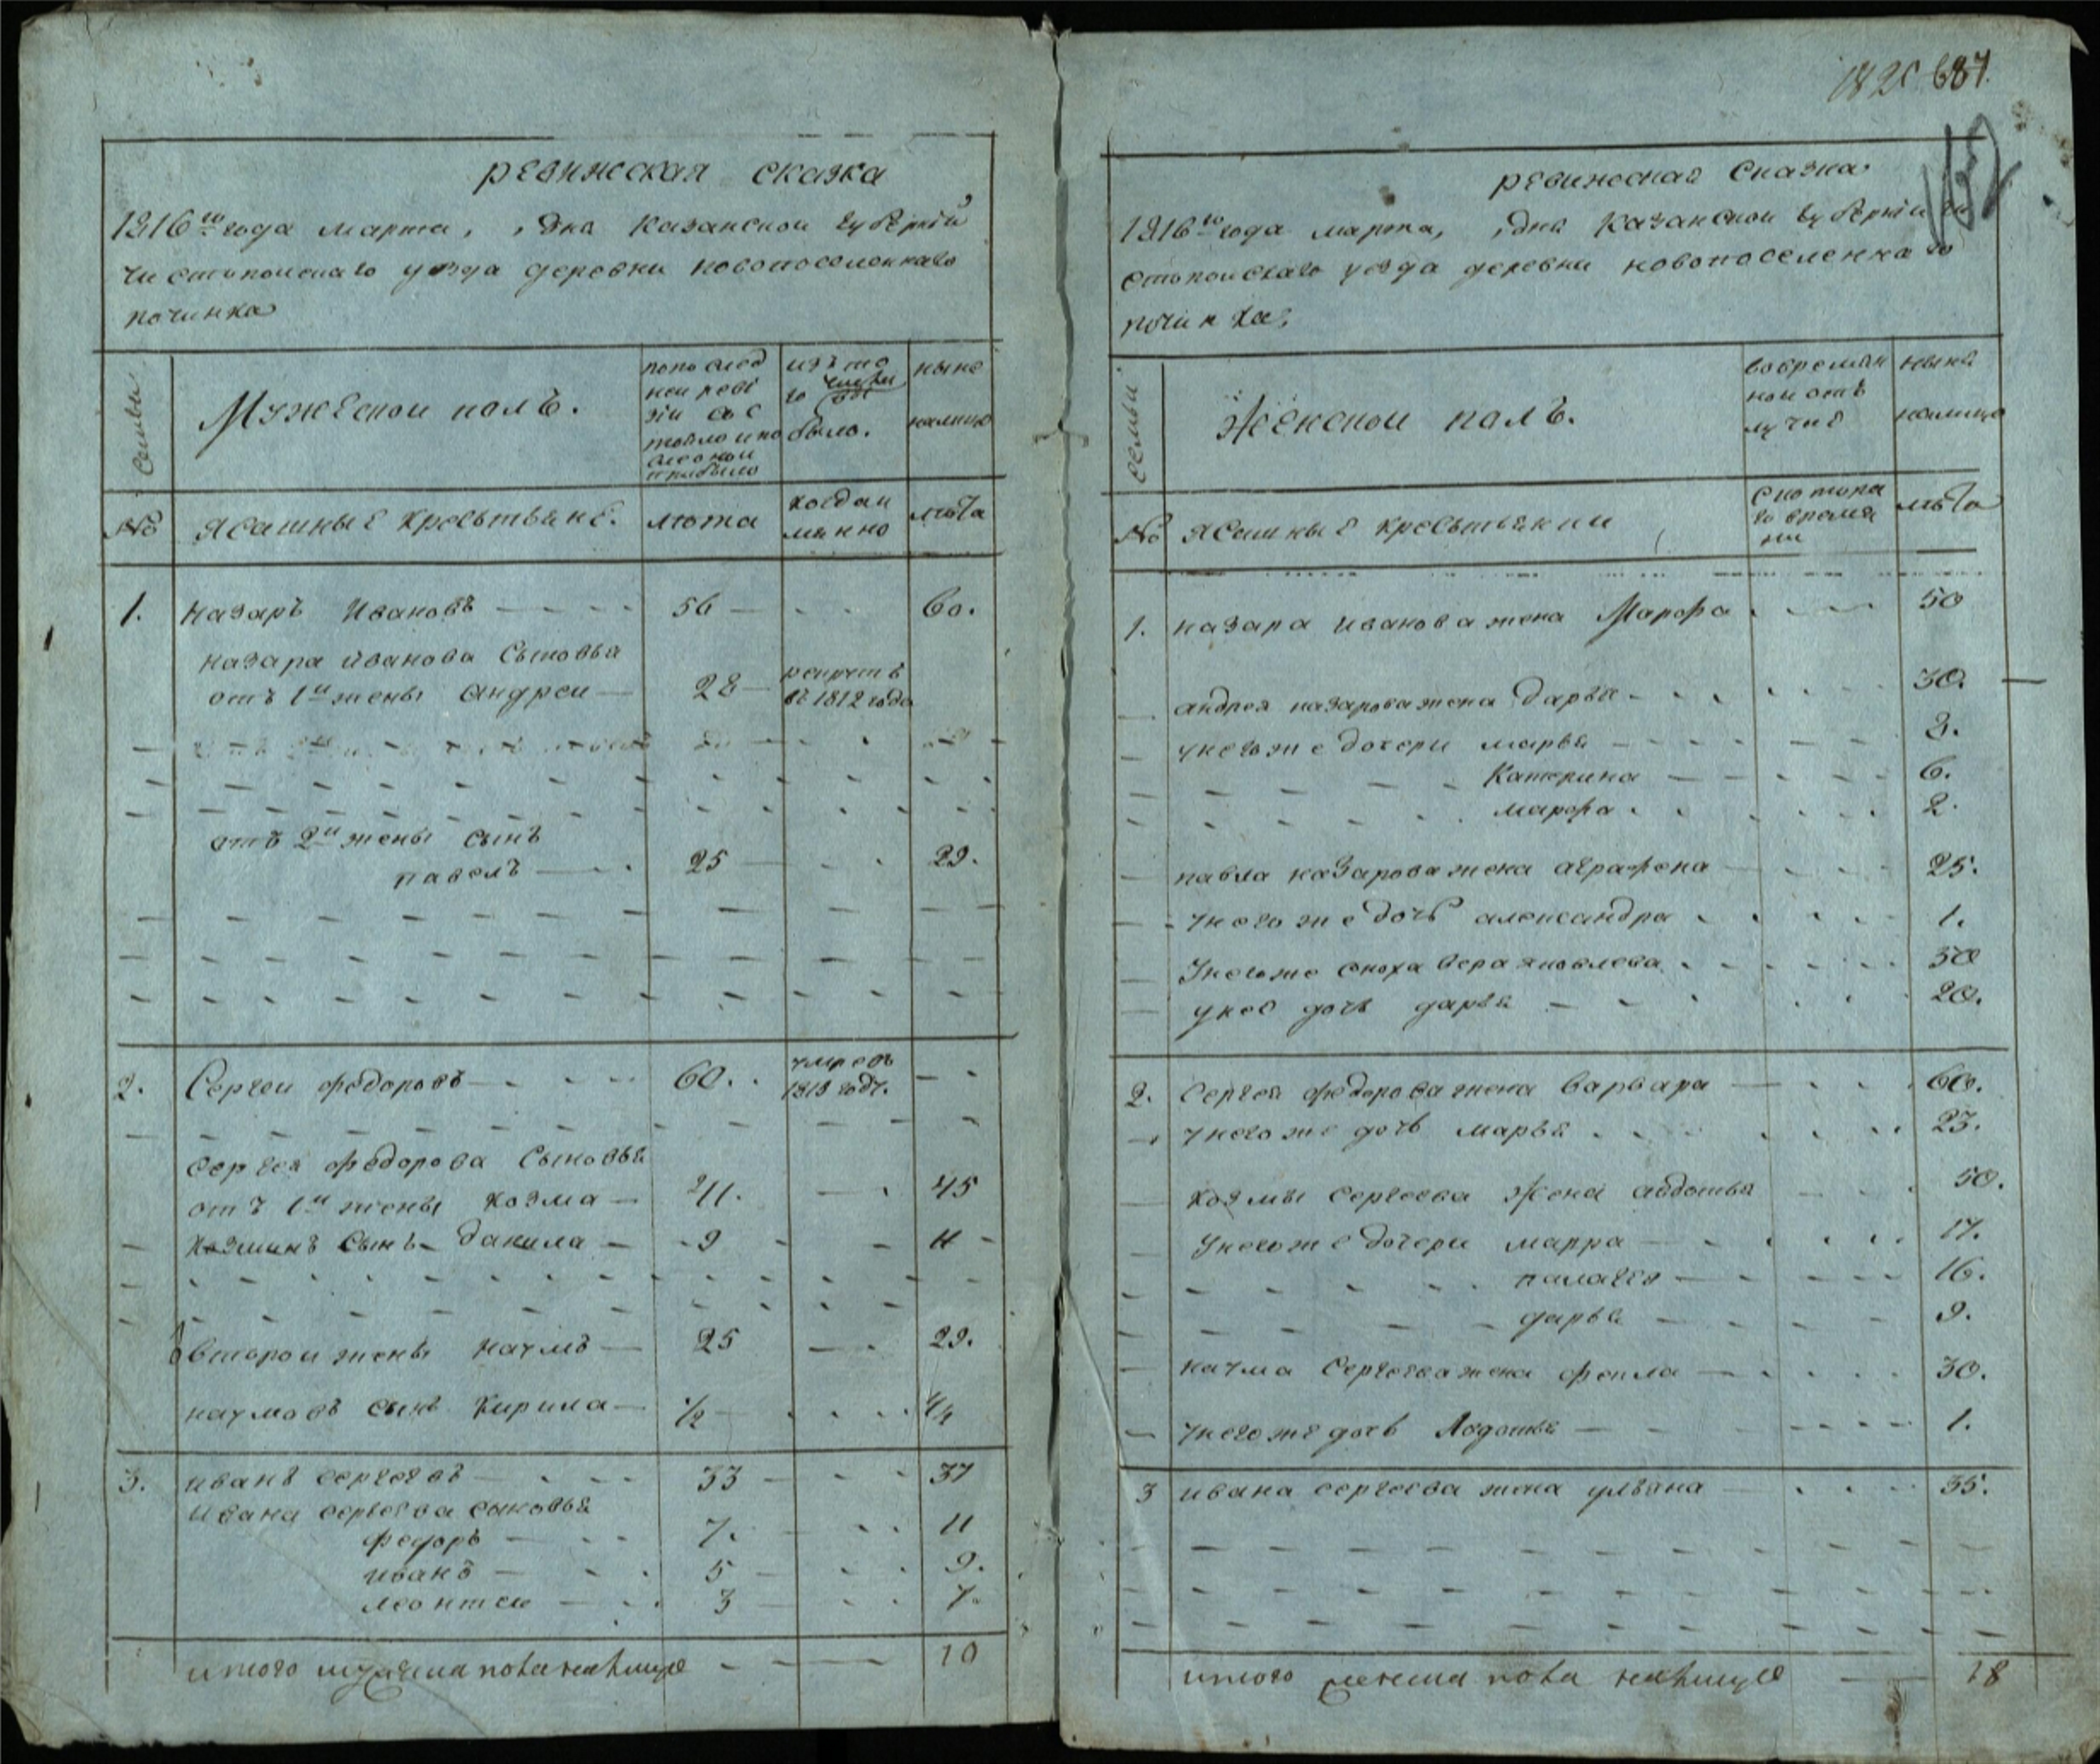 ревижская сказка
1816го года марта, дня казанской губернии
чистопольскаго уезда деревни новопоселеннаго
починка
Семьи
Мужескои полъ.
попослед
ней реви
зіи сос
тояло и по
слеонои
прибыло
изъ то
го числа
выбыло.
ныне
налицо
№
Ясашные крестьяне.
лета
когда и
мянно
лета
1. назаръ Ивановъ 56 60.
назара иванова Сыновья
отъ 1й жены андреи 28 рекрутъ
въ 1812 года
отъ 2й жены сынъ
павелъ 25 29.
2. Сергеи федоровъ 60. умре въ
1813 году.
Сергея федорова Сыновья
отъ 1й жены козма 41. 45
козминъ сынъ данила 9 11
второи жены наумъ 25 29.
наумовъ сынъ Кирила 1/2 4 1/2
3. иванъ сергеевъ 33 37
ивана сергеева сыновья
федоръ 7. 11
иванъ 5 9.
леонтеи 3 7.
итого мужеска пола налицо 10
687.
ревижская Сказка
1816го года марта, дня Казанской губернии чи
стопольскаго уезда деревни новопоселеннаго
починка,
семьи
Женскои полъ.
вовремян
нои отъ
лучке
ныне
налицо
№
ясашные крестьянки
с котора
го время
ни
лета
1. назара иванова жена Марфа 50
андрея назарова жена дарья 30.
у него же дочери марья 8.
Катерина 6.
марфа 2.
павла назарова жена аграфена 25.
у него же дочь александра 1.
у него же сноха вера яковлева 50
у нее дочь дарья 20.
2. сергея федорова жена варвара 60.
у него же дочь марья 23.
козмы сергеева жена авдотья 50.
у него же дочери марфа 17.
палагея 16.
дарья 9.
наума Сергеева жена фекла 30.
у него же дочь Авдотья 1.
3 ивана сергеева жена ульяна 35.
итого женска пола налицо 18